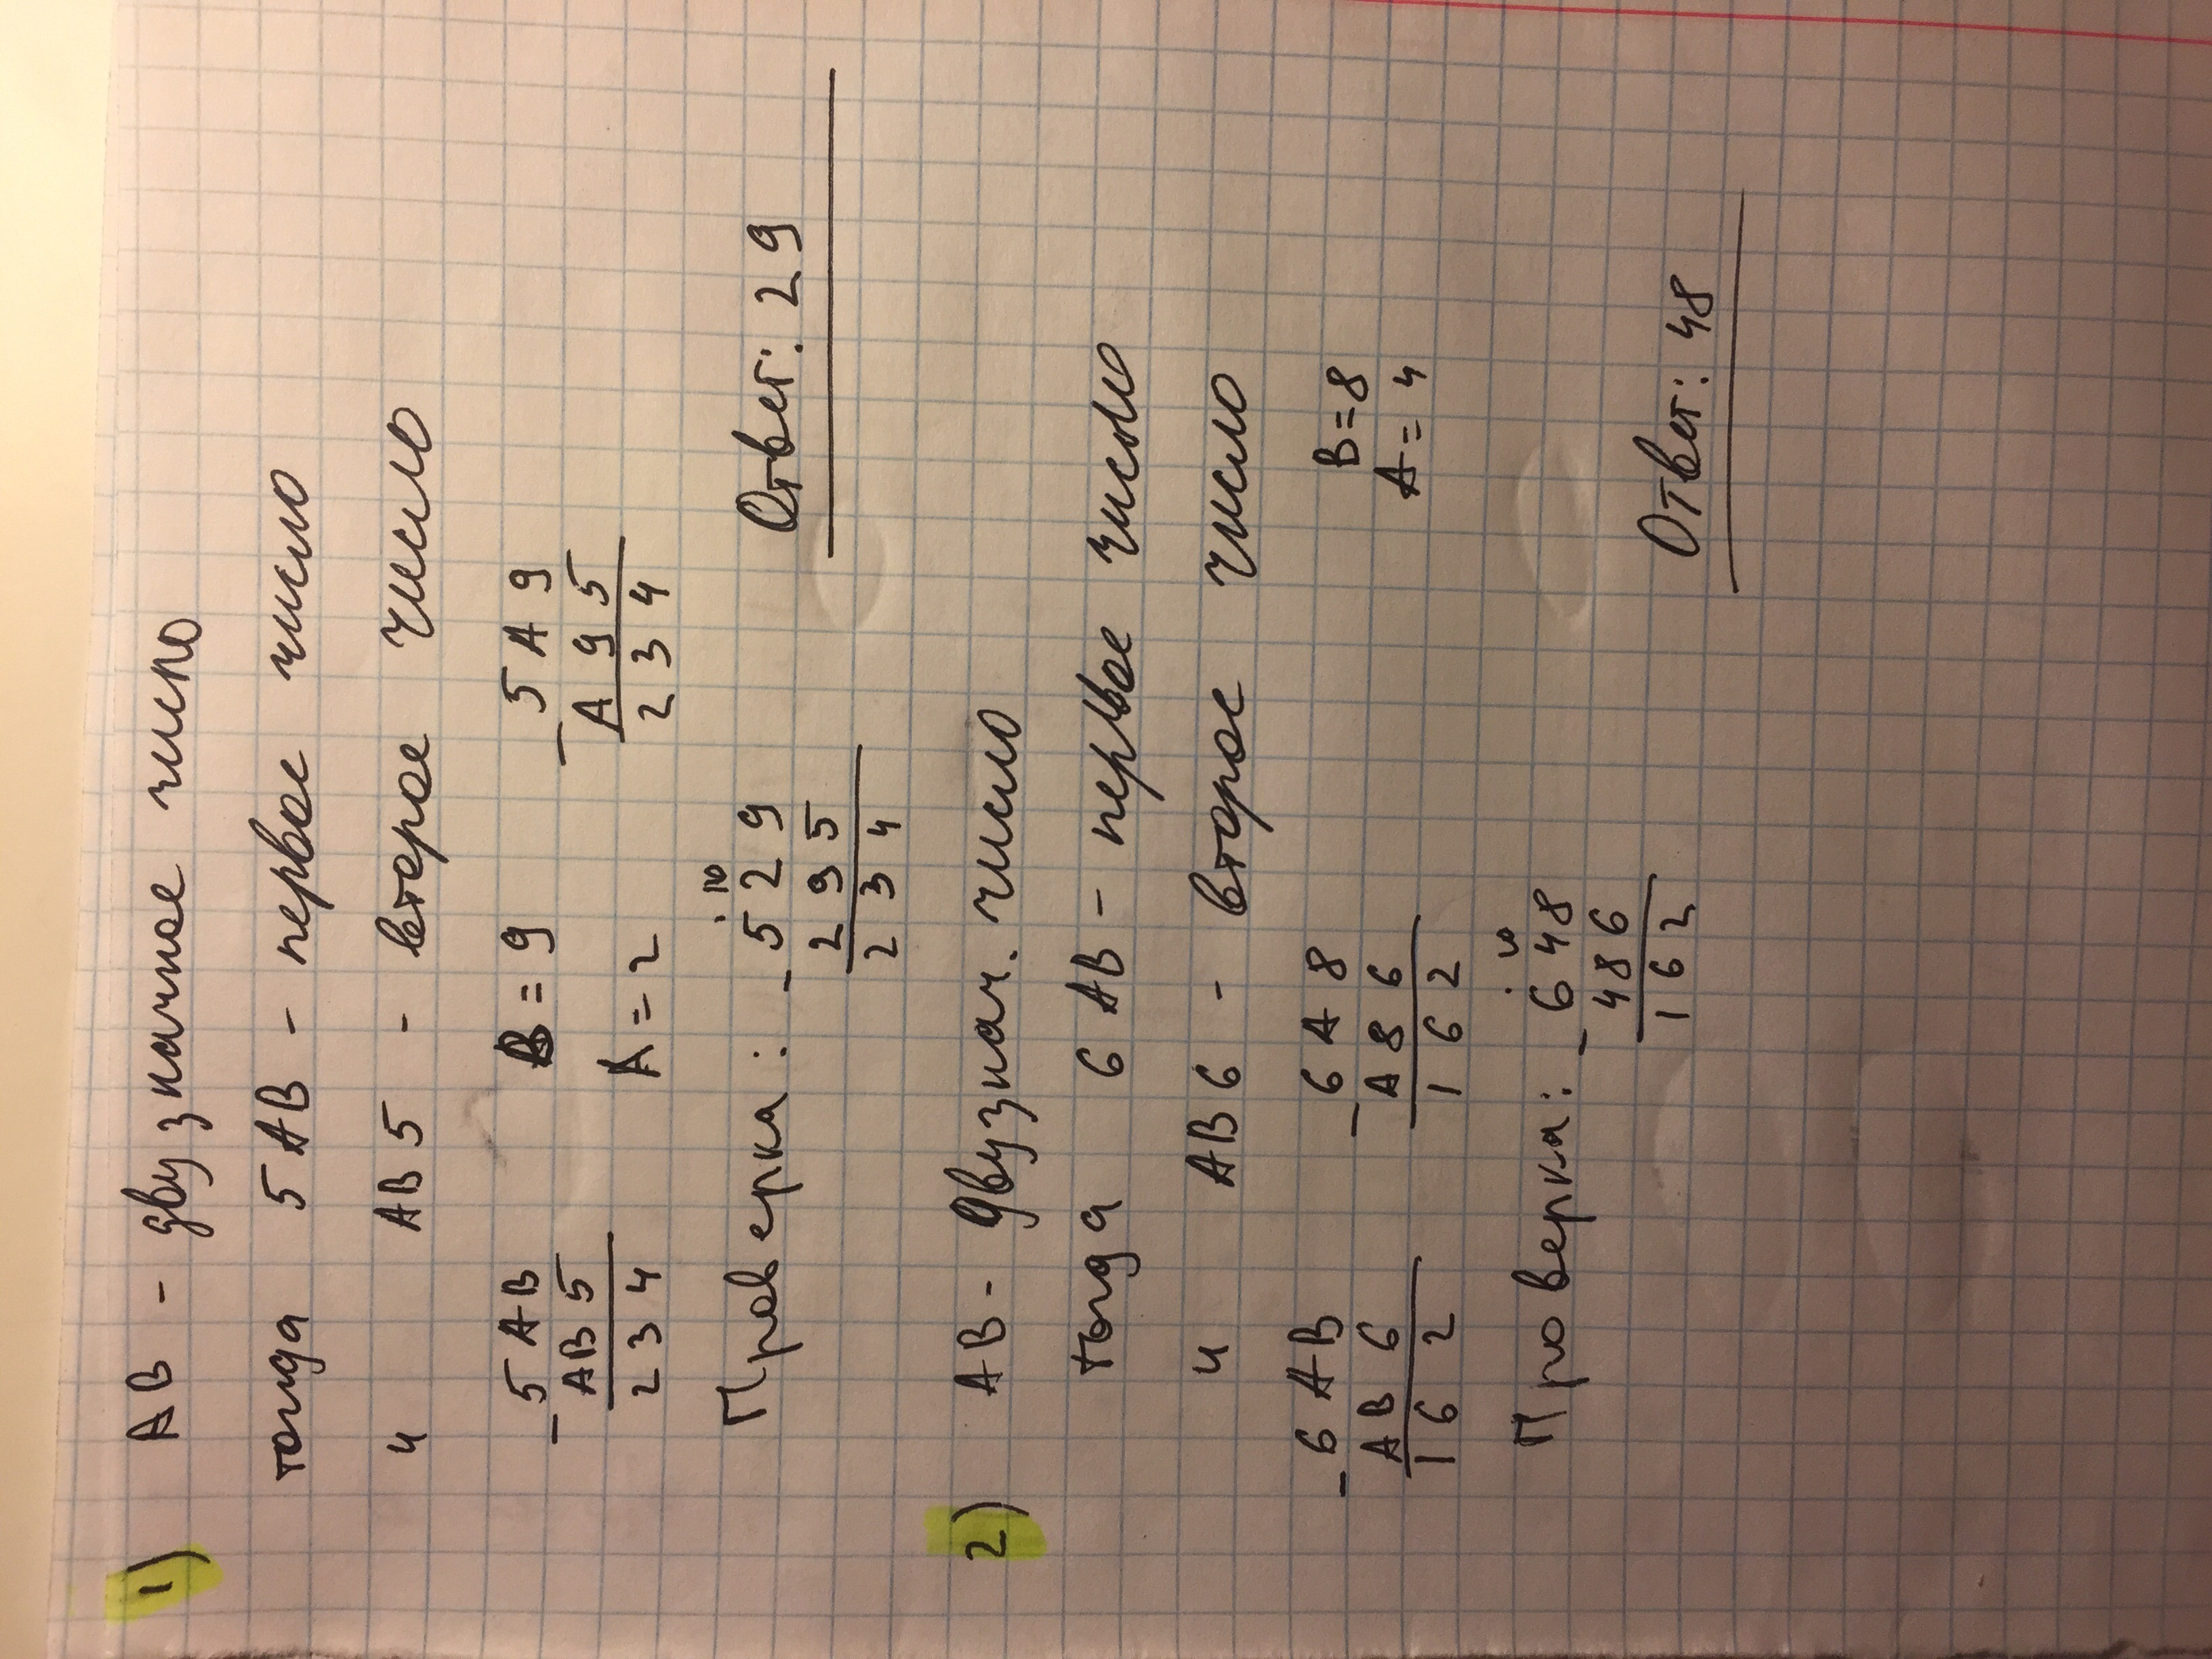 1) АВ - двузначное число
тогда 5АВ - первое число
и АВ5 - второе число
- 5АВ В=9 - 5А9
АВ5 А=2 А95
234 234
Проверка: - 529
295
234
Ответ: 29
2) АВ - двузнач. число
тогда 6АВ - первое число
и АВ6 - второе число
- 6АВ - 6А8 В=8
АВ6 А86 А=4
162 162
Проверка: - 648
486
162
Ответ: 48